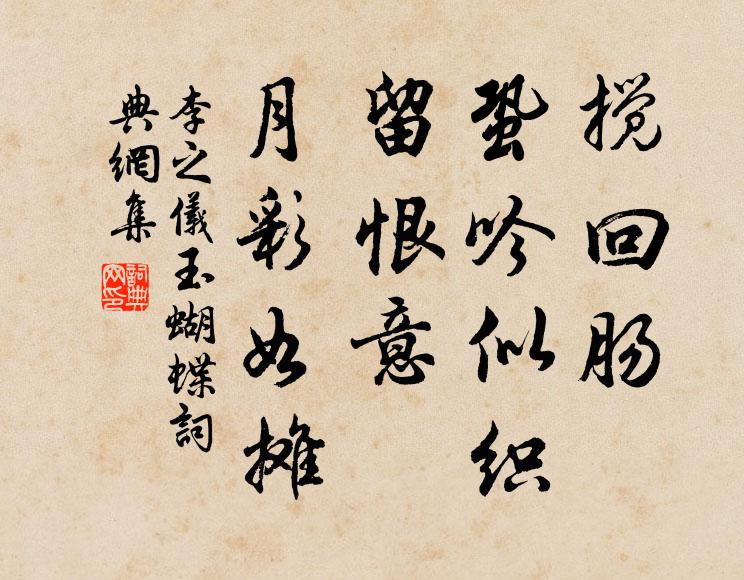 搅回肠
蛩吟似织
留恨意
月彩如摊
李之儀玉蝴蝶詞
典網集
詞典網印